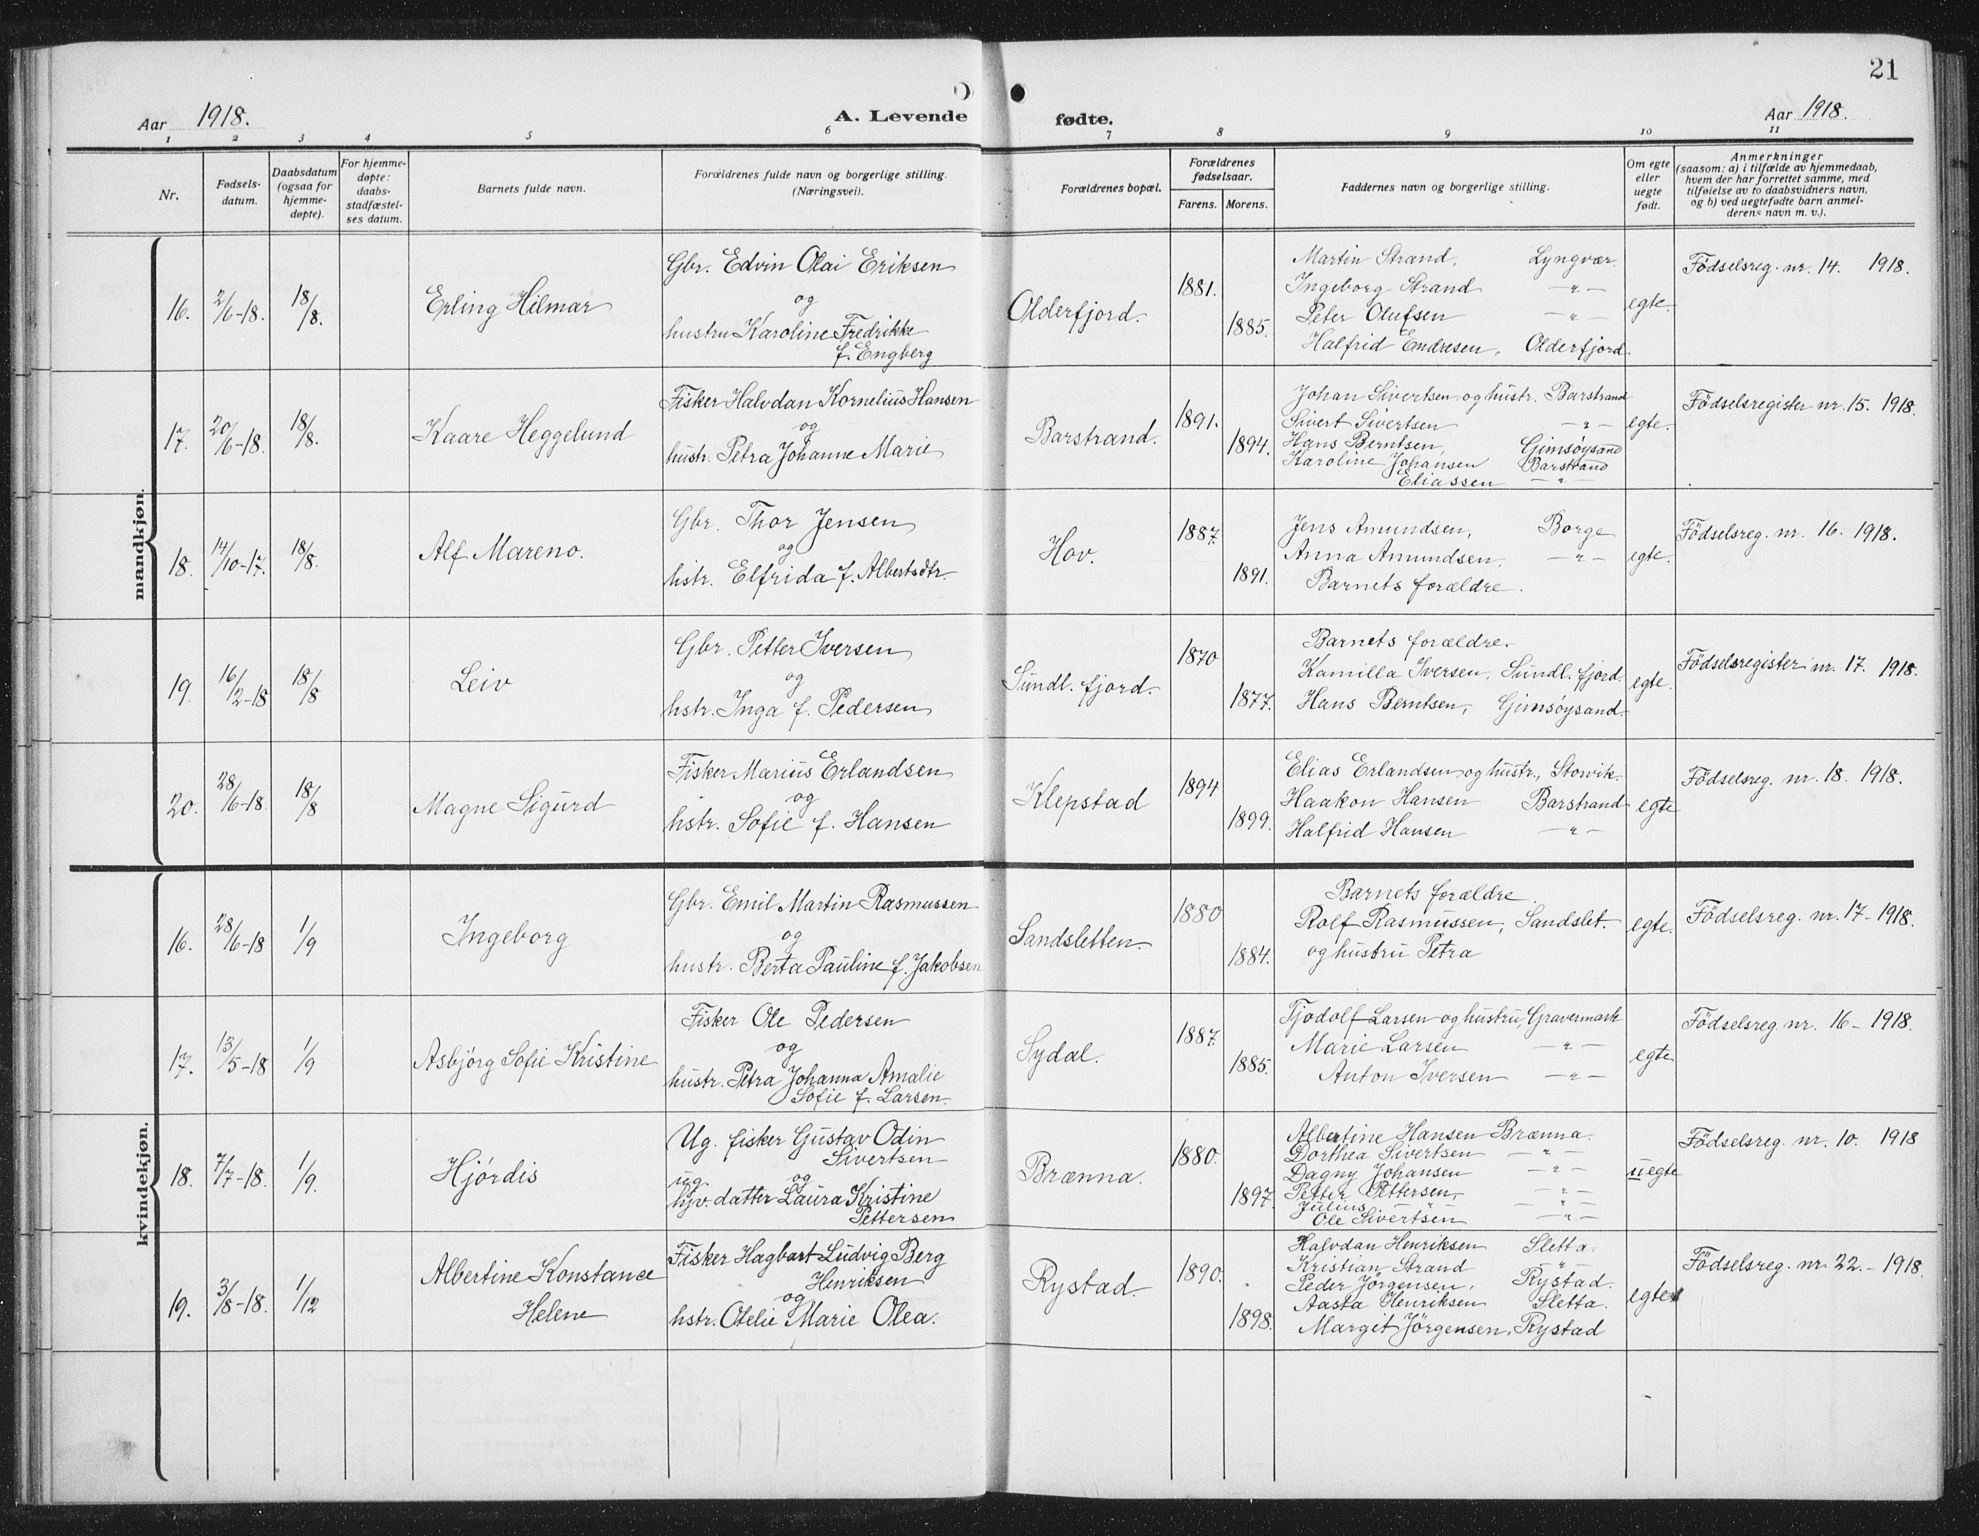 21
Aar 1918.
A. Levende fødte.
Aar 1918.
1 2 3 4 5 6 7 8 9 10 11
Nr.
Fødsels-
datum.
Daabsdatum
(ogsaa for
hjemme-
døpte).
For hjemme-
døpte:
daabs-
stadfæstel-
ses datum.
Barnets fulde navn.
Forældrenes fulde navn og borgerlige stilling.
(Næringsvei).
Forældrenes bopæl.
Forældrenes
fødselsaar.
Farens. Morens.
Faddernes navn og borgerlige stilling.
Om egte
eller
uegte
født.
Anmerkninger
(saasom: a) i tilfælde av hjemmedaab,
hvem der har forrettet samme, med
tilføielse av to daabsvidners navn,
og b) ved uegtefødte barn anmel-
derens navn m. v.).
mandkjøn.
16. 2/6-18. 18/8. Erling Hilmar
Gbr. Edvin Olai Eriksen
og
hustru Karoline Fredrikke
f. Engberg
Olderfjord. 1881. 1885.
Martin Strand. Lyngvær.
Ingeborg Strand -"-
Peter Olufsen -"-
Halfrid Emdresen, Olderfjord
egte. Födselsreg. nr. 14. 1918.
17. 20/6-18. 18/8. Kaare Heggelund
Fisker Halvdan Kornelius Hansen
og
hustr. Petra Johanne Marie
Barstrand. 1891. 1894.
Johan Sivertsen og hustr. Barstrand
Sivert Sivertsen -"-
Hans Berntsen, Gimsøysand
Karoline Johansen Barstrand
Eliassen -"-
egte. Födselsregister nr. 15. 1918.
18. 14/10-17. 18/8. Alf Mareno.
Gbr. Thor Jensen
og
hstr. Elfrida f. Albertsdtr.
Hov. 1887. 1891.
Jens Amundsen, Borge
Anna Amundsen. -"-
Barnets forældre.
egte. Födselsreg. nr. 16. 1918.
19. 16/2-18 18/8 Leiv
Gbr. Petter Iversen
og
hstr. Inga f. Pedersen
Sundl. fjord. 1870 1877.
Barnets forældre.
Kamilla Iversen, Sundl. fjord
Hans Berntsen, Gimsøysand.
egte. Födselsregister nr. 17. 1918.
20. 28/6-18. 18/8 Magne Sigurd
Fisker Marius Erlandsen
og
hstr. Sofie f. Hansen
Klepstad 1894 1899.
Elias Erlandsen og hustr., Storvik.
Haakon Hansen Barstrand
Halfrid Hansen -"-
egte Födselsreg. nr. 18. 1918.
kvindekjøn.
16. 28/6-18 1/9 Ingeborg
Gbr. Emil Martin Rasmussen
og
hustr. Berta Pauline f. Jakobsen
Sandsletten. 1880 1884.
Barnets forældre.
Rolf Rasmussen, Sandslet.
og hustru Petra
egte. Födselsreg. nr. 17-1918.
17. 13/5-18 1/9 Asbjörg Sofie Kristine
Fisker Ole Pedersen
og
hustr. Petra Johanna Amalie
Sofie f. Larsen.
Sydal. 1887. 1885.
Tjodolf Larsen og hustru, Gravermark
Marie Larsen -"-
Anton Iversen -"-
egte Födselsreg. nr. 16-1918.
18. 7/7-18. 1/9. Hjördis
Ug. fisker Gustav Odin
Sivertsen
og
ug.
hjv. datter Laura Kristine
Pettersen
Brænna. 1880. 1897.
Albertine Hansen Brænna.
Dorthea Sivertsen -"-
Dagny Johansen -"-
Petter Pettersen, -"-
Julius " -"-
Ole Sivertsen -"-
uegte Födselsreg. nr. 10. 1918
19. 3/8-18. 1/12 Albertine Konstance
Helene
Fisker Hagbart Ludvig Berg
Henriksen
og
hstr. Otelie Marie Olea.
Rystad. 1890. 1898.
Halvdan Henriksen Sletta.
Kristian Strand -"-
Peder Jörgensen, Rystad.
Aasta Henriksen Sletta.
Margit Jörgensen, Rystad
egte Födselsreg. nr. 22.-1918.